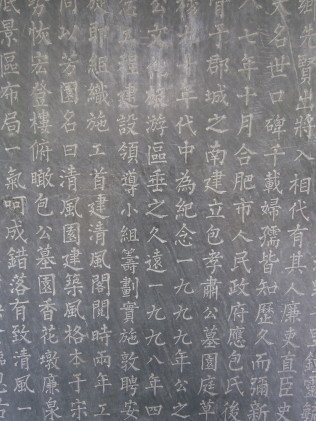 先賢出將入相代有其人廉吏直臣史
名世口碑千載婦孺皆知歷久而彌新
八七年十月合肥市人民政府應包氏後
于郡城之南建立包孝肅公墓園庭草
十年代中為紀念一九九九年公之
公文化旅游區垂之久遠一九九八年四
工程建設領導小組籌劃實施敦聘安
部組織施工首建清風閣閱時兩年工
以芳園名曰清風園建築風格本于宋
恢宏登樓俯瞰包公墓園香花墩廉泉
景區布局一氣呵成錯落有致清風一